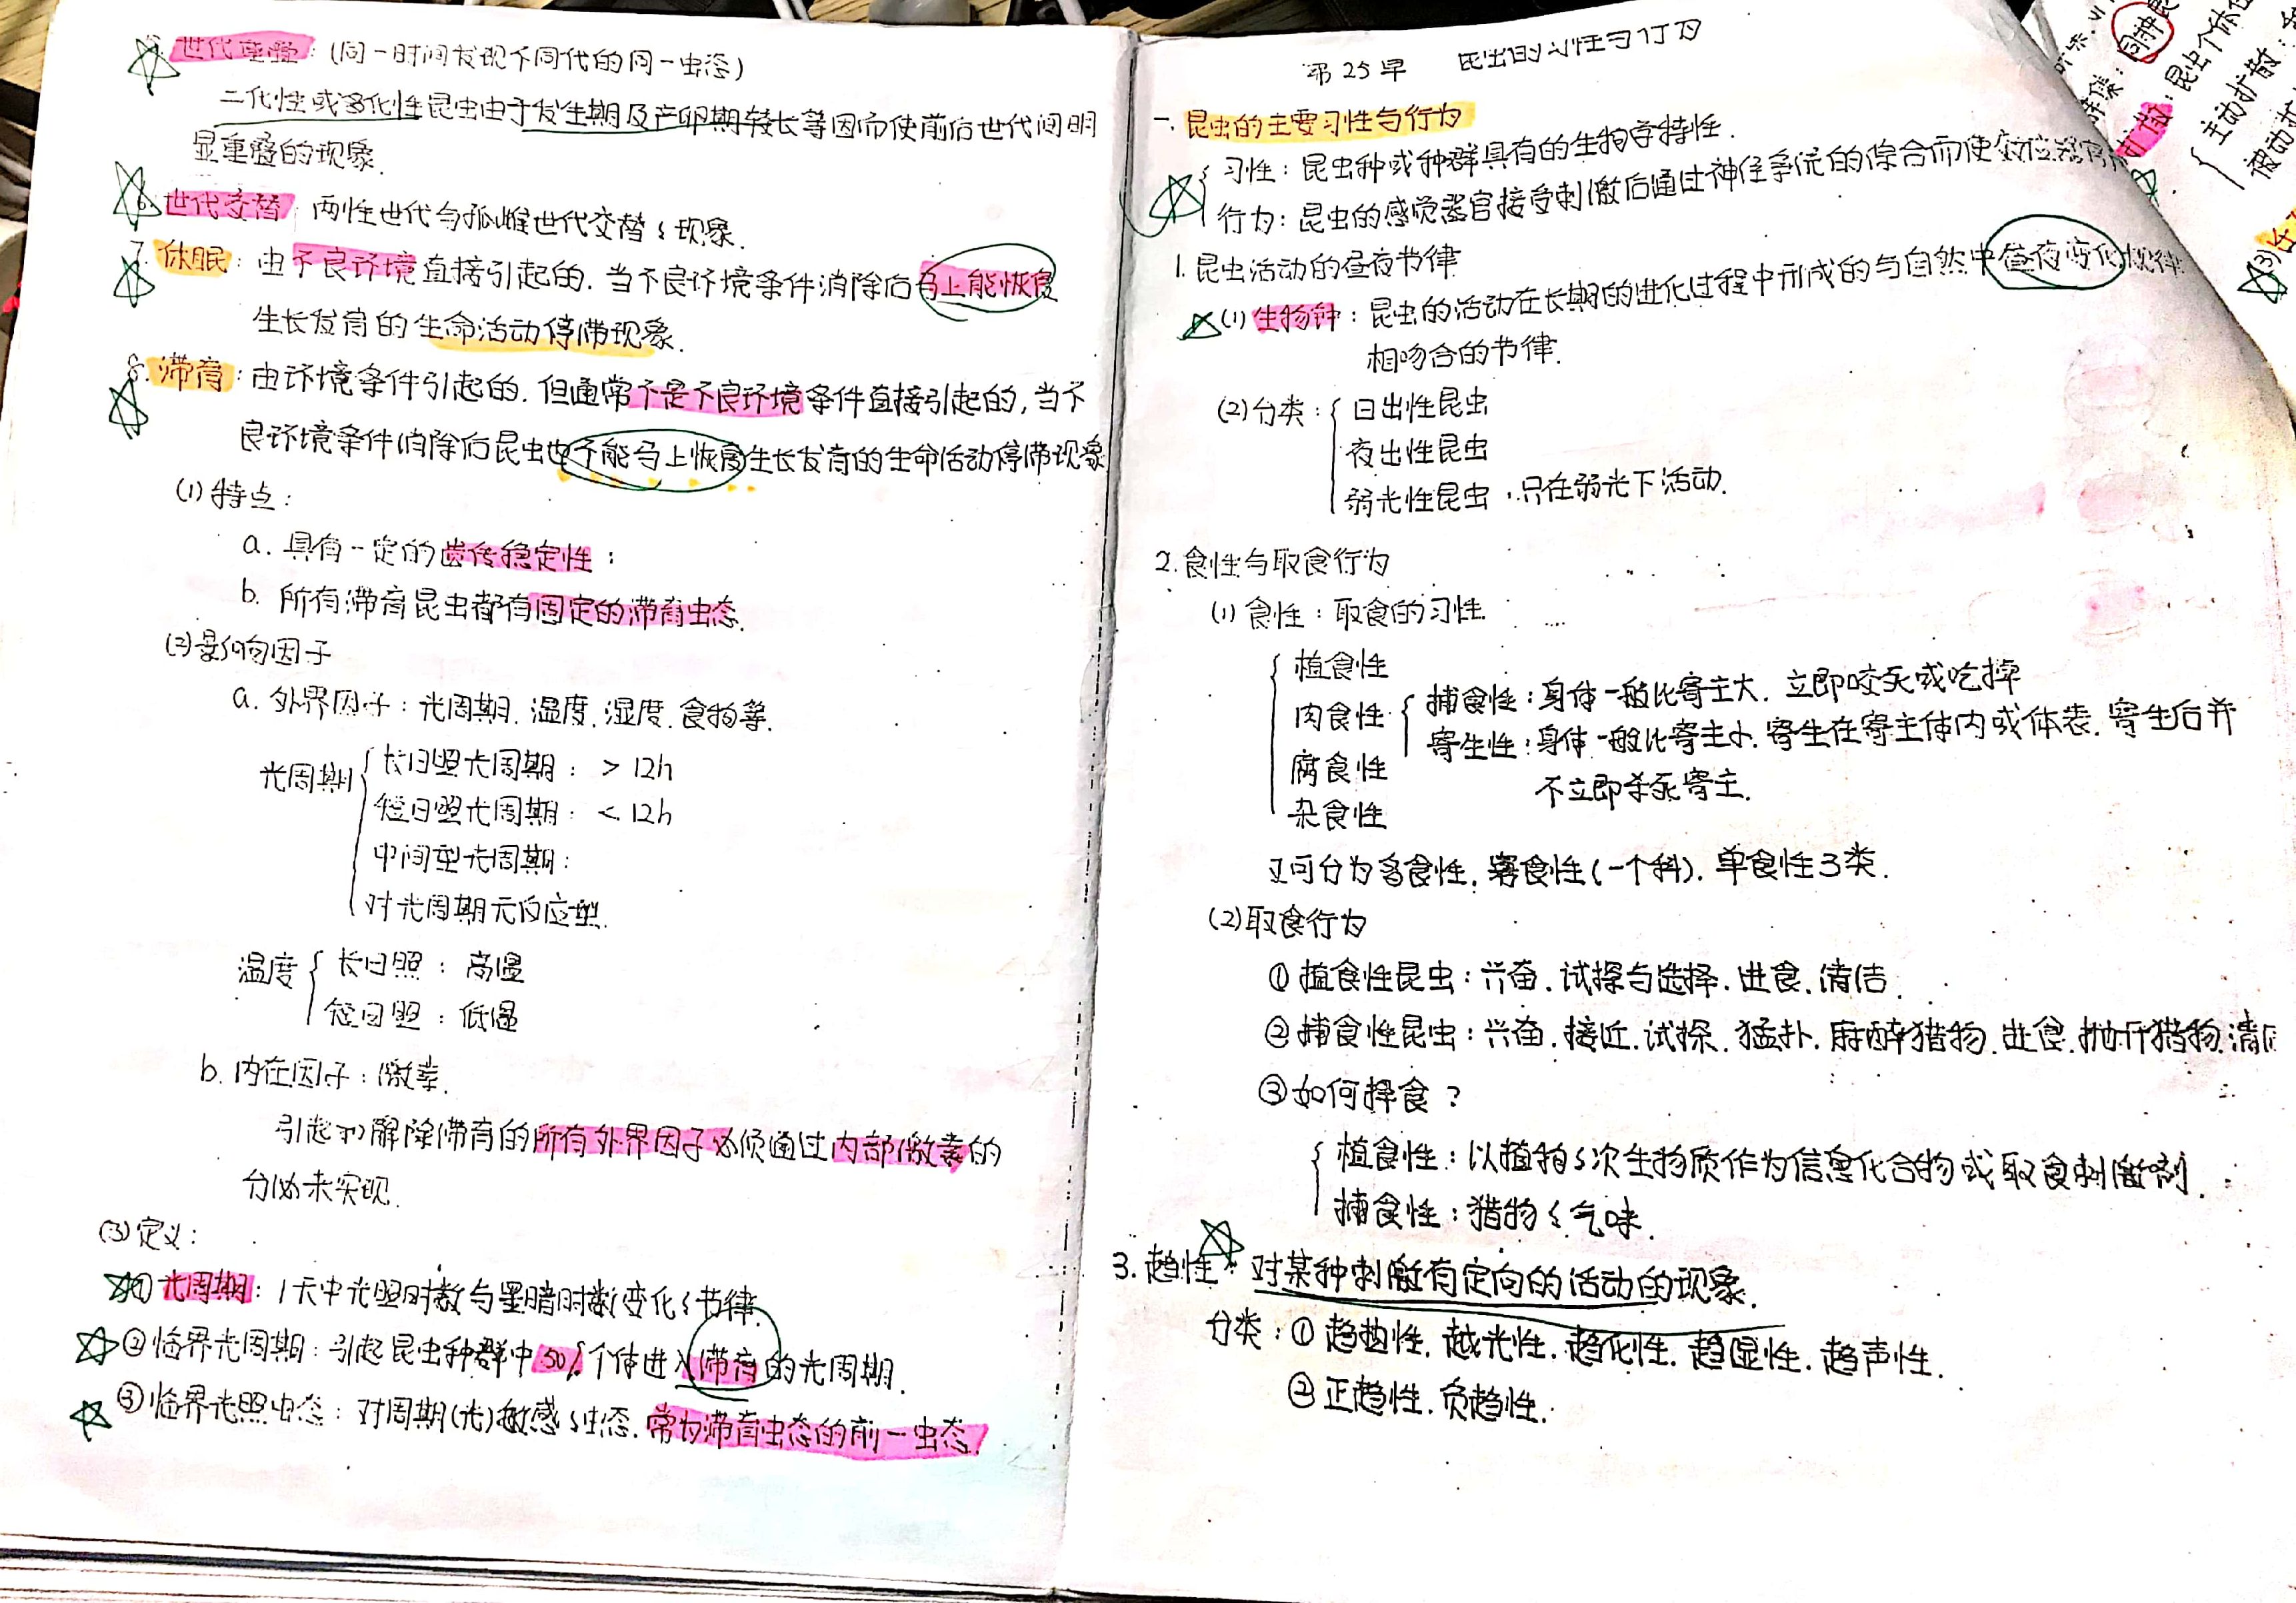 5. 世代重叠：(同一时间发现不同代的同一虫态)
二化性或多化性昆虫由于发生期及产卵期较长等因而使前后世代间明
显重叠的现象.
6. 世代交替：两性世代与孤雌世代交替之现象.
7. 休眠：由不良环境直接引起的. 当不良环境条件消除后马上能恢复
生长发育的生命活动停滞现象.
8. 滞育：由环境条件引起的. 但通常不是不良环境条件直接引起的, 当不
良环境条件消除后昆虫也不能马上恢复生长发育的生命活动停滞现象
(1) 特点：
a. 具有一定的遗传稳定性；
b. 所有滞育昆虫都有固定的滞育虫态.
(2) 影响因子
a. 外界因子：光周期. 温度. 湿度. 食物等.
光周期
长日照光周期：> 12h
短日照光周期：< 12h
中间型光周期：
对光周期无反应型.
温度
长日照：高温
短日照：低温
b. 内在因子：激素.
引起和解除滞育的所有外界因子必须通过内部激素的
分泌来实现.
(3) 定义：
① 光周期：1天中光照时数与黑暗时数变化之节律.
② 临界光周期：引起昆虫种群中50%个体进入滞育的光周期.
③ 临界光照虫态：对周期(光)敏感之虫态. 常为滞育虫态的前一虫态.
第25章 昆虫的习性与行为
一. 昆虫的主要习性与行为
习性：昆虫种或种群具有的生物学特性.
行为：昆虫的感觉器官接受刺激后通过神经系统的综合而使效应器官
1. 昆虫活动的昼夜节律
(1) 生物钟：昆虫的活动在长期的进化过程中形成的与自然中昼夜变化规律
相吻合的节律.
(2) 分类：
日出性昆虫
夜出性昆虫
弱光性昆虫：只在弱光下活动.
2. 食性与取食行为
(1) 食性：取食的习性
植食性
肉食性
捕食性：身体一般比寄主大. 立即咬死或吃掉
寄生性：身体一般比寄主小. 寄生在寄主体内或体表. 寄生后并
不立即杀死寄主.
腐食性
杂食性
又可分为多食性. 寡食性(一个科). 单食性3类.
(2) 取食行为
① 植食性昆虫：兴奋. 试探与选择. 进食. 清洁.
② 捕食性昆虫：兴奋. 接近. 试探. 猛扑. 麻醉猎物. 进食. 抛开猎物. 清
③ 如何择食？
植食性：以植物之次生物质作为信息化合物或取食刺激剂.
捕食性：猎物之气味.
3. 趋性：对某种刺激有定向的活动的现象.
分类：① 趋热性. 趋光性. 趋化性. 趋湿性. 趋声性.
② 正趋性. 负趋性.
昆虫个体
主动扩散：
被动扩